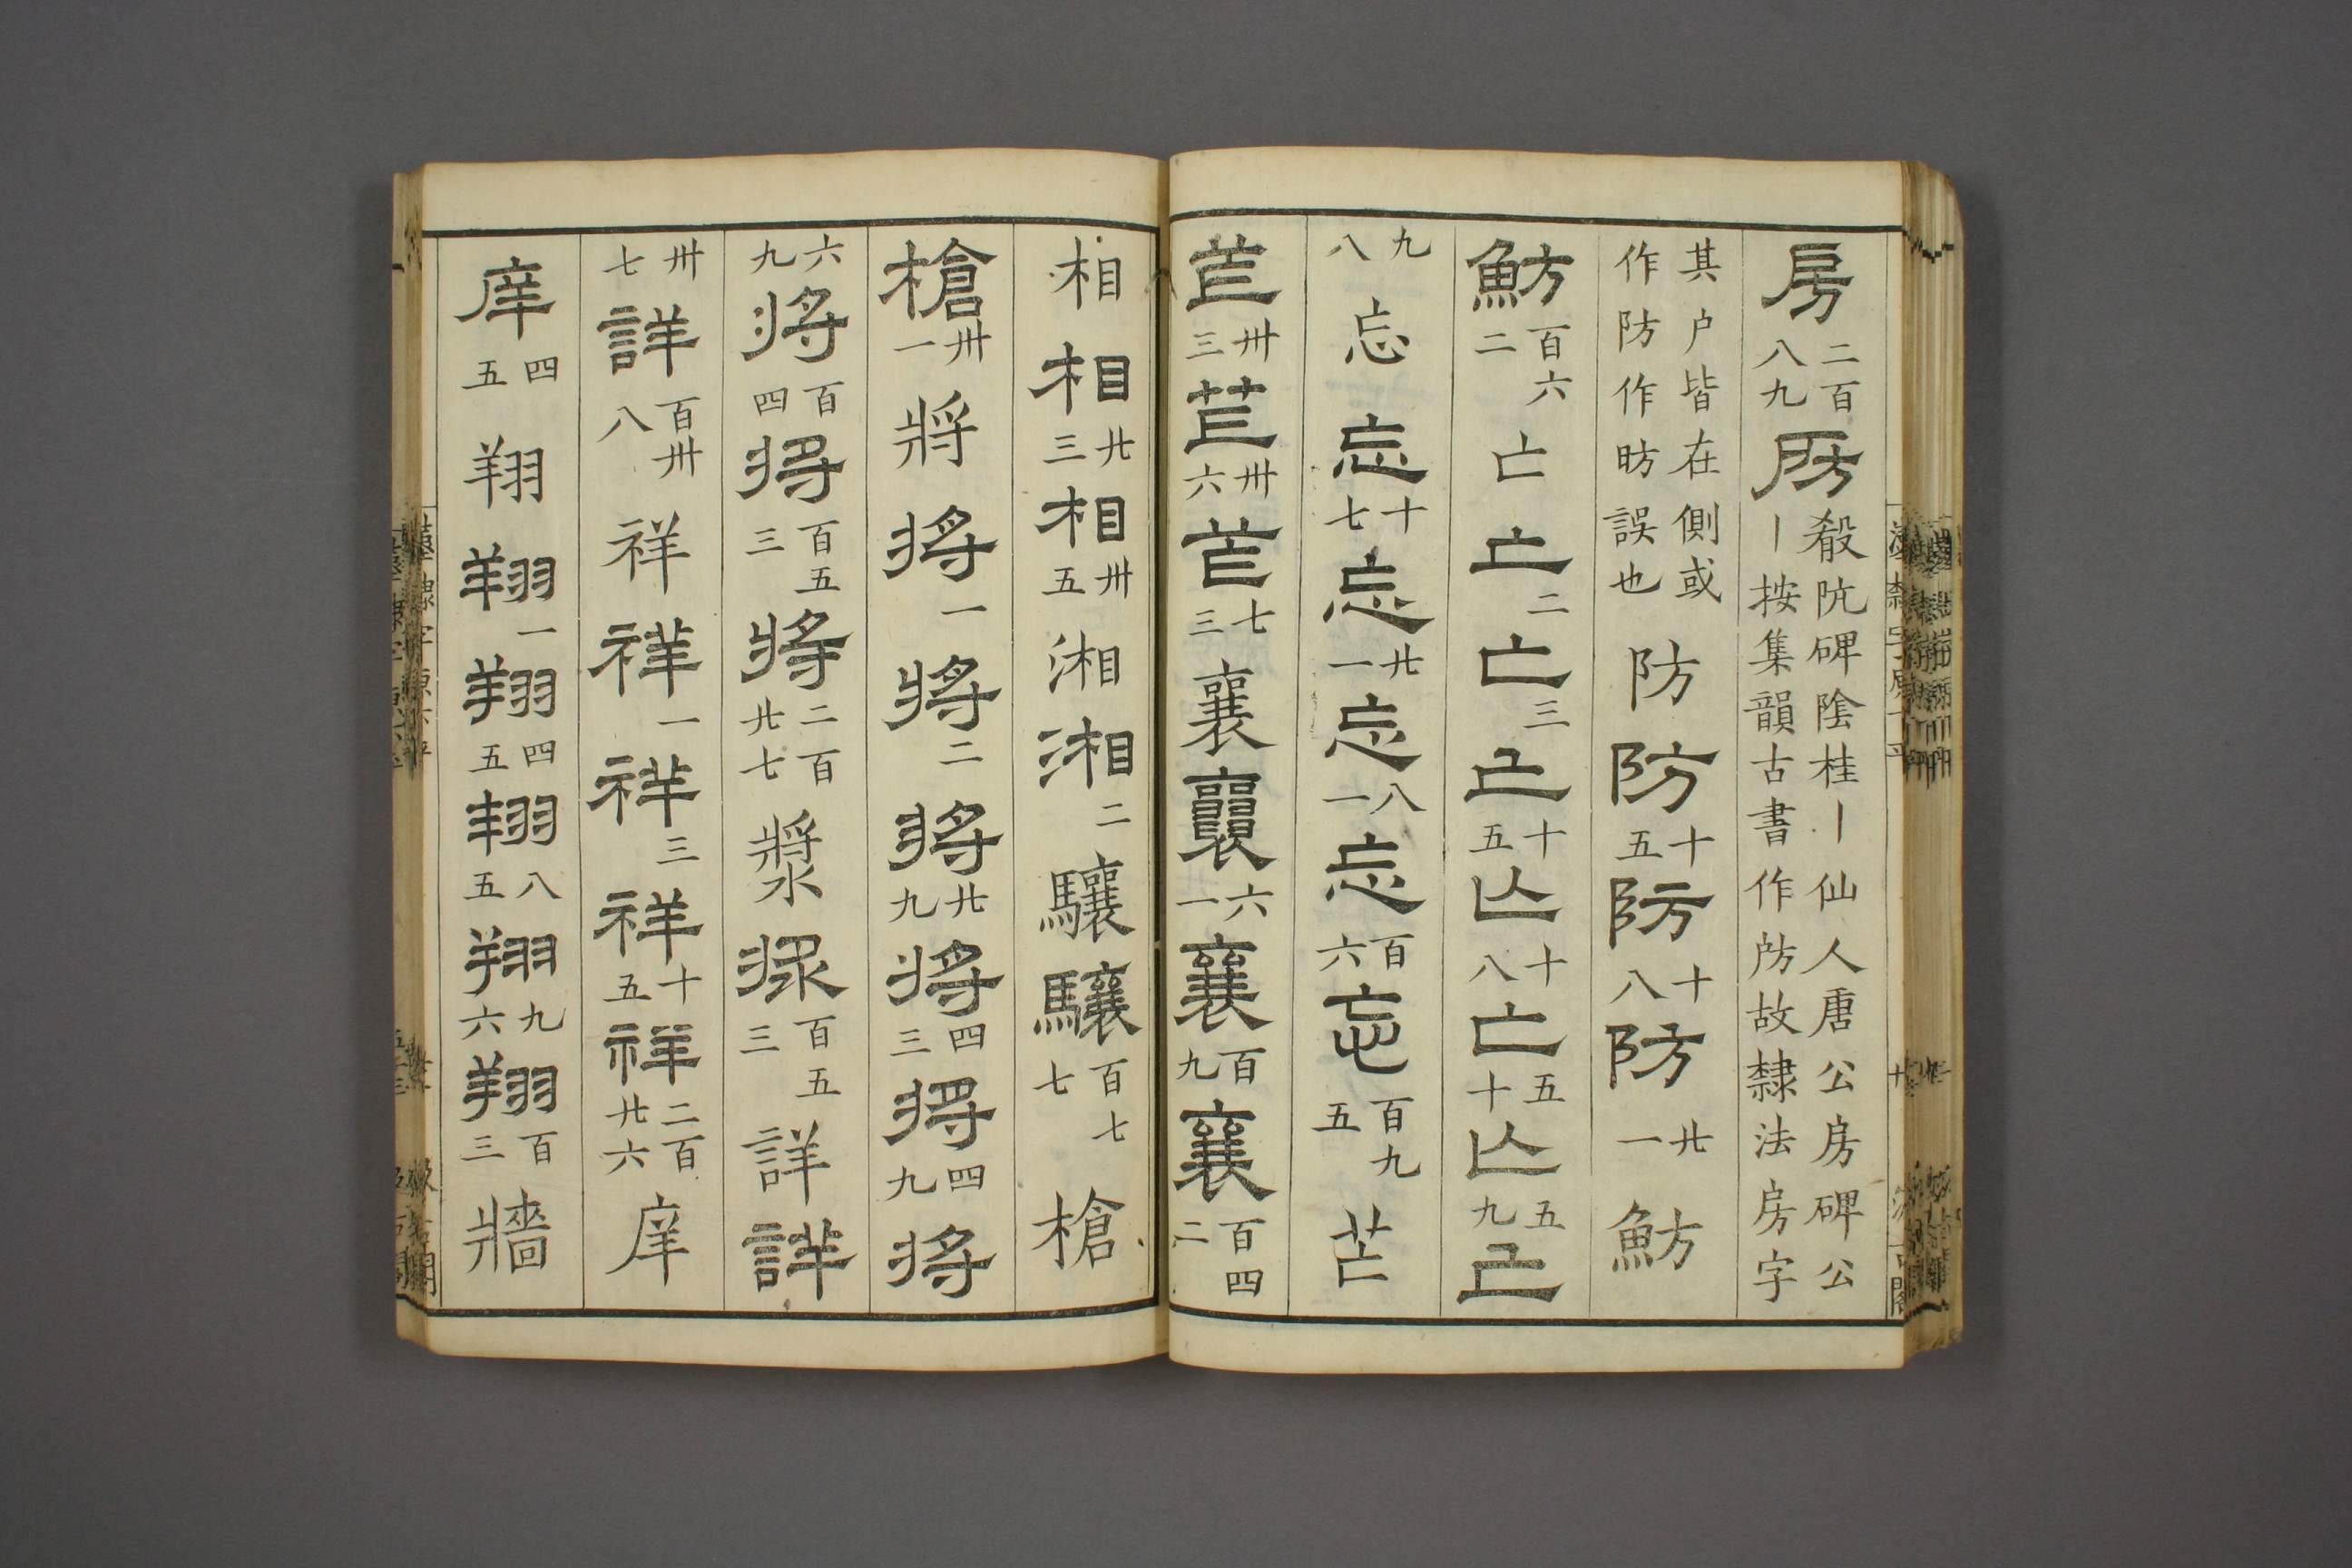 房 二百八九 㕫 殽阬碑陰桂丨仙人唐公房碑公丨按集韻古書作㕫故隸法房字
其户皆在側或作防作昉誤也 防 防 十五 防 十八 防 廿一 魴
魴 百六二 亡 亡 二 亡 三 亡 十五 亡 十八 亡 五十 亡 五九 亡
九八 忘 忘 十七 忘 廿一 忘 八一 忘 百六 忘 百九五 芒
芒 卅三 芒 卅六 芒 七三 襄 襄 六一 襄 百九 襄 百四二
相 相 廿三 相 卅五 湘 湘 二 驤 驤 百七七 槍
槍 卅一 將 將 一 將 二 將 廿九 將 四三 將 四九 將
六九 將 百四 將 百五三 將 二百廿七 漿 漿 百五三 詳 詳
卅七 詳 百卅八 祥 祥 一 祥 三 祥 十五 祥 二百廿六 庠
庠 四五 翔 翔 一 翔 四五 翔 八五 翔 九六 翔 百三 牆